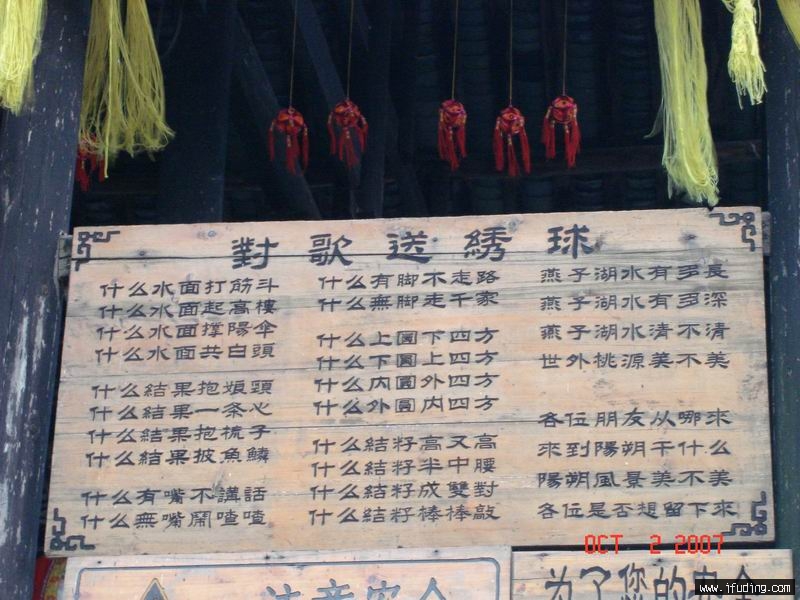 對歌送綉球
什么水面打筋斗
什么水面起高樓
什么水面撑陽伞
什么水面共白頭
什么結果抱娘頸
什么結果一条心
什么結果抱梳子
什么結果披魚鱗
什么有嘴不講話
什么無嘴閙喳喳
什么有脚不走路
什么無脚走千家
什么上圓下四方
什么下圓上四方
什么内圓外四方
什么外圓内四方
什么結籽高又高
什么結籽半中腰
什么結籽成雙對
什么結籽棒棒敲
燕子湖水有多長
燕子湖水有多深
燕子湖水清不清
世外桃源美不美
各位朋友从哪來
來到陽朔干什么
陽朔風景美不美
各位是否想留下來
OCT 2 2007
注意安全
为了您的安全
www.ifuding.com